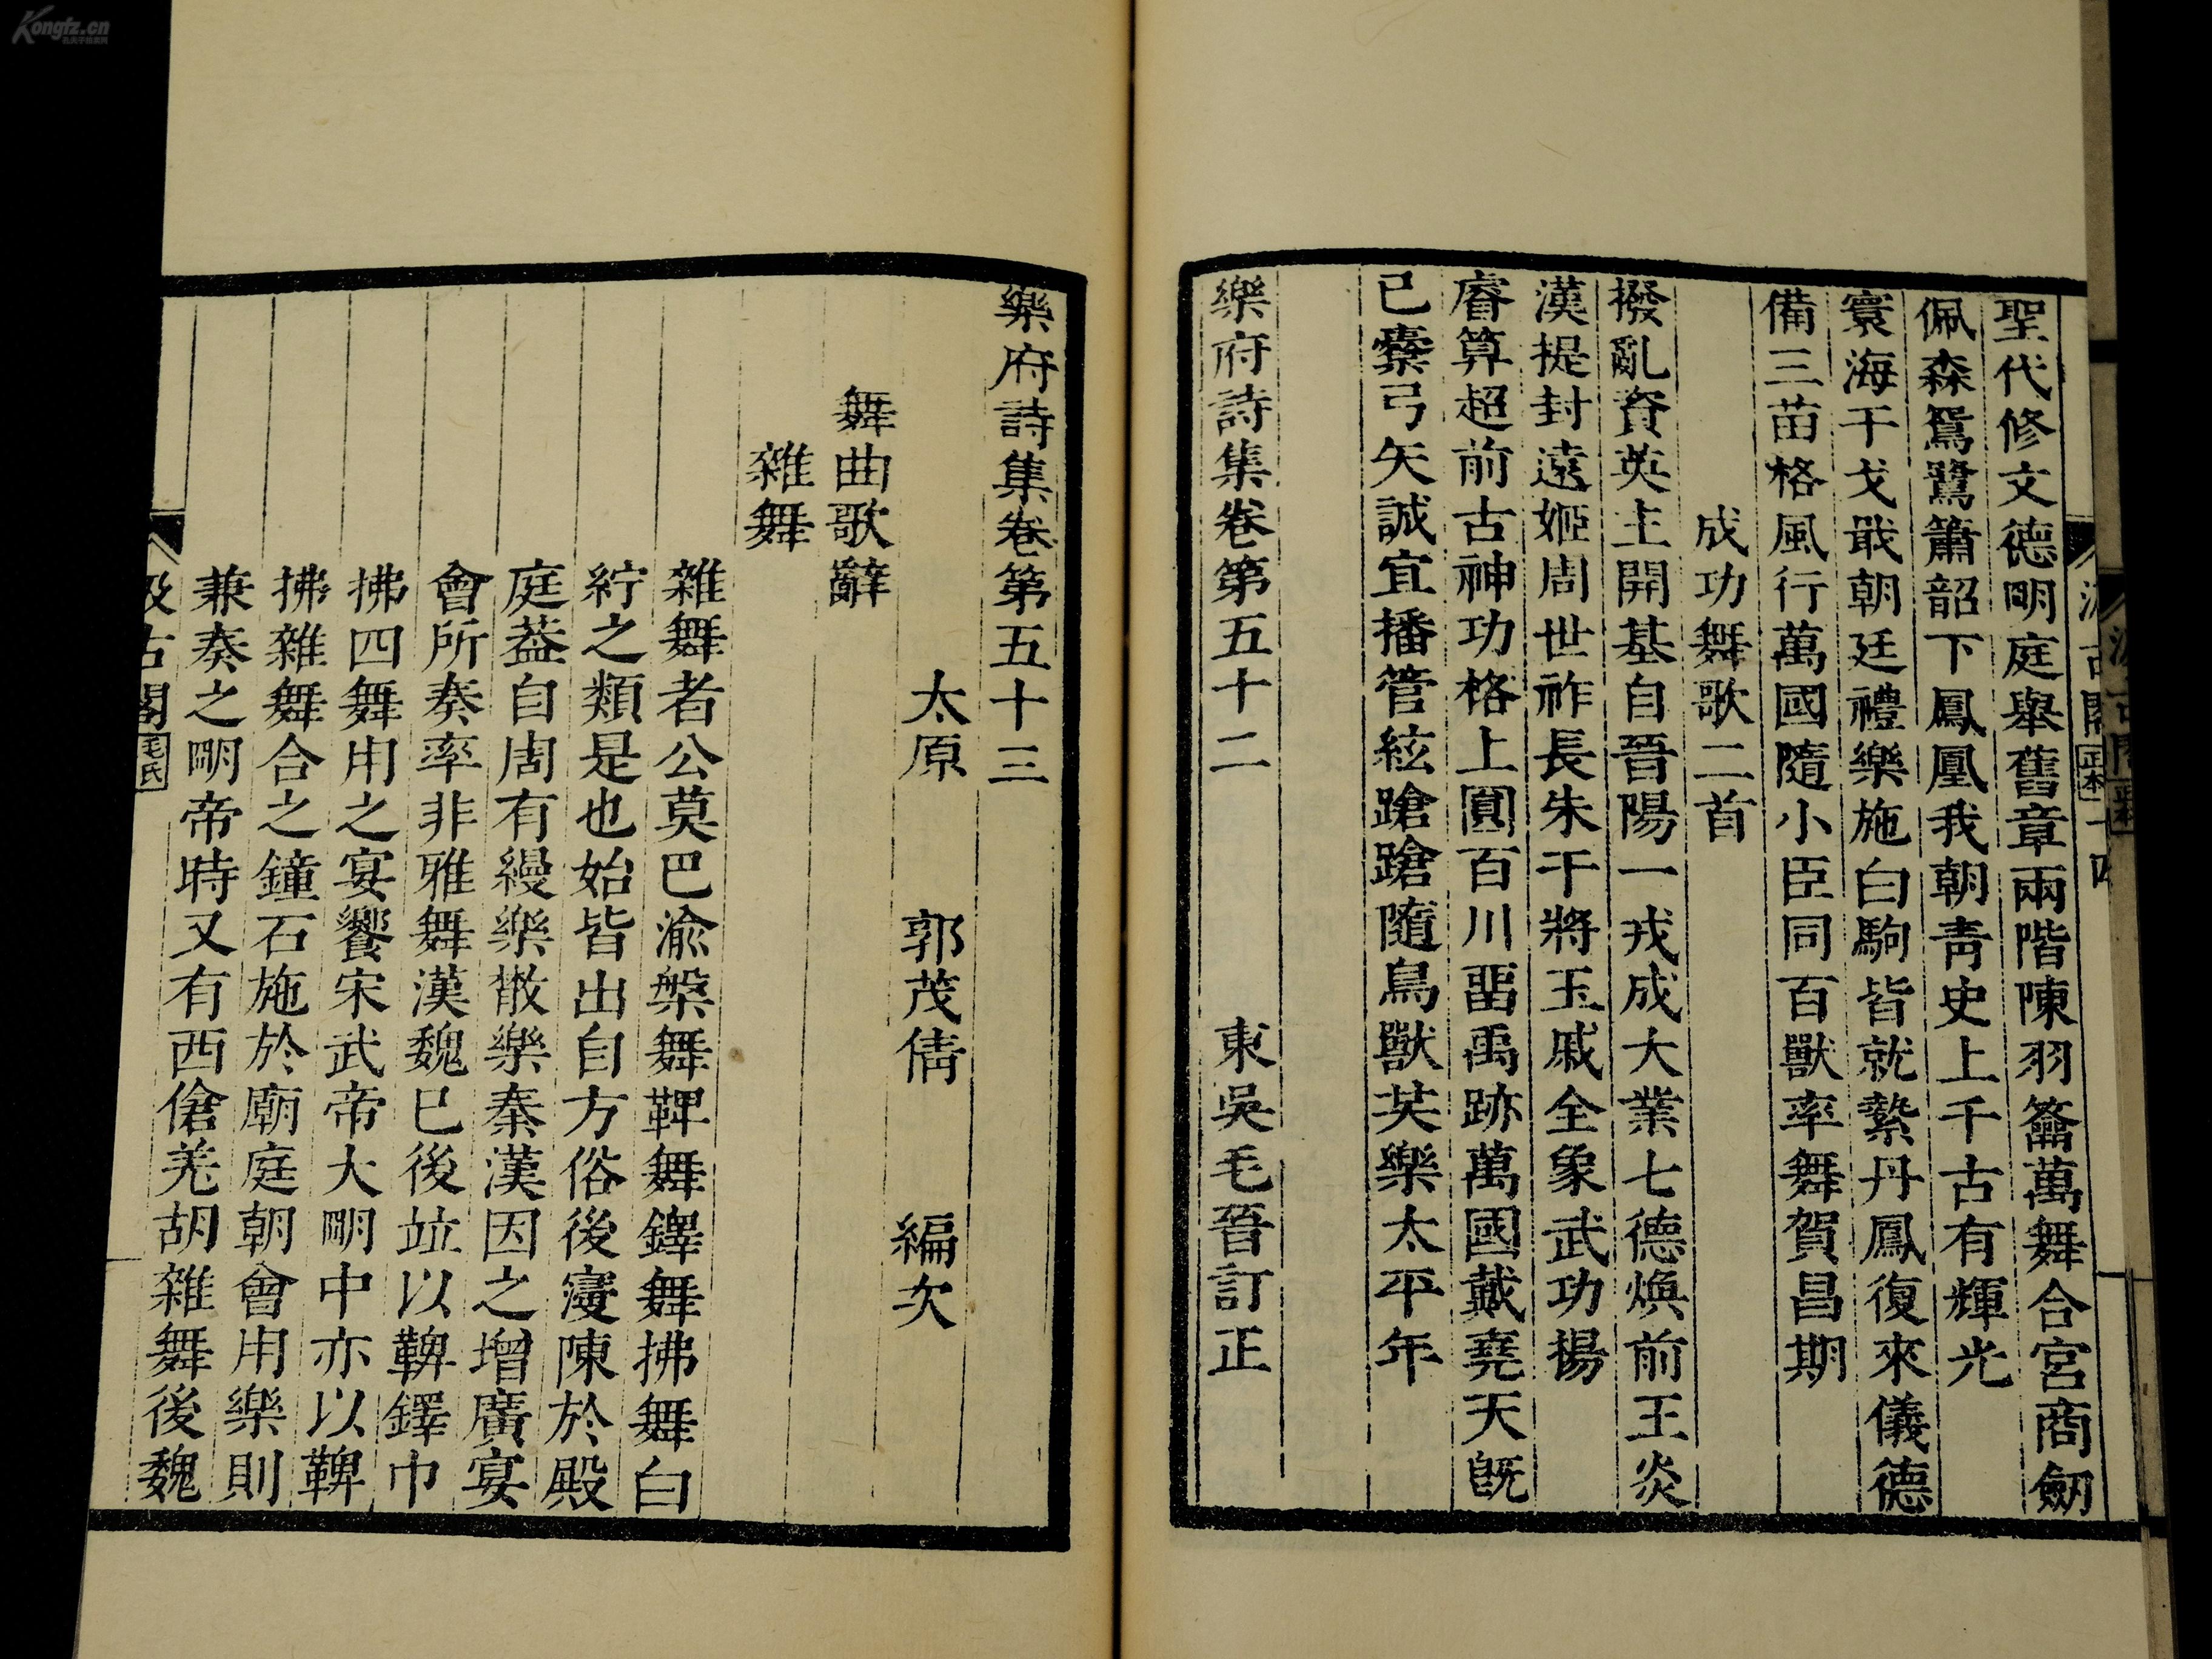 聖代修文德明庭舉舊章兩階陳羽籥萬舞合宮商劒
佩森鴛鷺簫韶下鳳凰我朝青史上千古有輝光
寰海干戈戢朝廷禮樂施白駒皆就縶丹鳳復來儀德
備三苗格風行萬國隨小臣同百獸率舞賀昌期
成功舞歌二首
撥亂資英主開基自晉陽一戎成大業七德煥前王炎
漢提封遠姬周世祚長朱干將玉戚全象武功揚
睿算超前古神功格上圓百川畱禹跡萬國戴堯天旣
已櫜弓矢誠宜播管絃蹌蹌隨鳥獸共樂太平年
樂府詩集卷第五十二 東吳毛晉訂正
樂府詩集卷第五十三
太原 郭茂倩 編次
舞曲歌辭
雜舞
雜舞者公莫巴渝槃舞鞞舞鐸舞拂舞白
紵之類是也始皆出自方俗後寖陳於殿
庭葢自周有縵樂散樂秦漢因之增廣宴
會所奏率非雅舞漢魏已後竝以鞞鐸巾
拂四舞用之宴饗宋武帝大明中亦以鞞
拂雜舞合之鐘石施於廟庭朝會用樂則
兼奏之明帝時又有西傖羌胡雜舞後魏
汲古閣 毛氏
Kongfz.cn